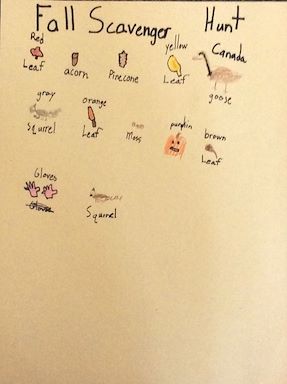 Fall Scavenger Hunt
Red Leaf
acorn
Pinecone
yellow Leaf
Canada goose
gray Squirrel
orange Leaf
Moss
pumpkin
brown Leaf
Gloves
Squirrel